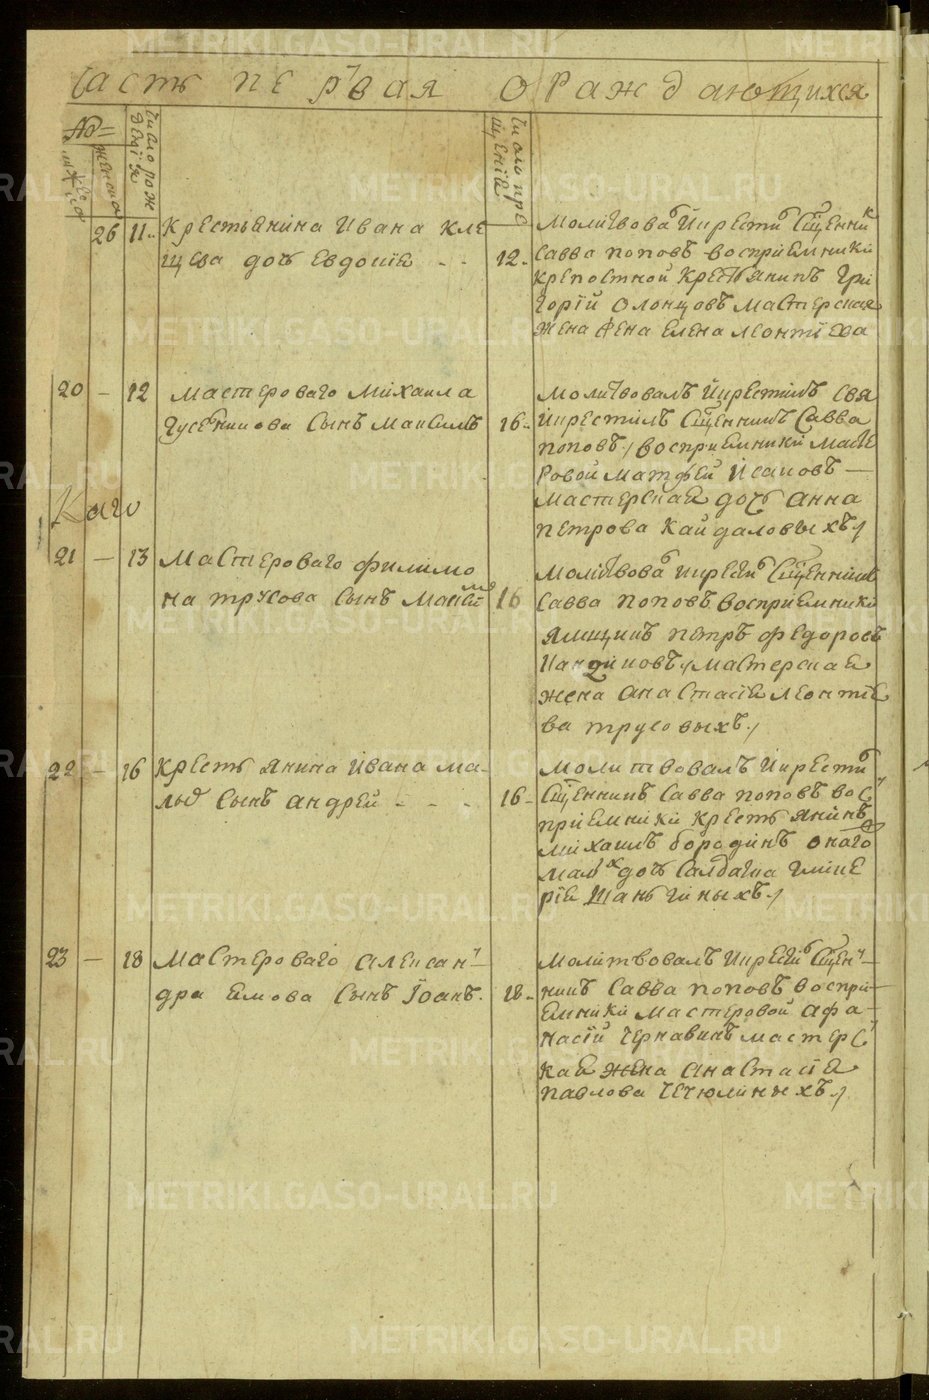 METRIKI.GASO-URAL.RU
Часть первая о раждающихся
№=
мужеска
женска
Число рождения
Число крещения
26 11. Крестьянина Ивана Кле
щева дочь Евдокіе - -
12.
Молитвова и крести Сщенник
Савва Поповъ воспріемники
крепостной крестьянинъ Гри
горій Олонцовъ мастерская
жена Елена Леонтіева
20 - 12 Мастероваго Михаила
Сынъ Максимъ
16.
Молитвовалъ и крестилъ Свя
и крестилъ Сщенникъ Савва
Поповъ воспріемники масте
ровой Матфей Исаковъ —
мастерская дочь Анна
Петрова Кайдаловыхъ
Кого
21 - 13 Мастероваго Филимо
на Трусова Сынъ Максимъ
16
Молитвова и крести Сщенникъ
Савва Поповъ воспріемники
ямщикъ Петръ Федоровъ
мастерская
жена Анастасіе Леонтіе
ва Трусовыхъ
22 - 16 Крестьянина Ивана Ма-
Сынъ Андрей - - -
16 -
Молитвовалъ и крести
Сщенникъ Савва Поповъ вос
пріемники крестьянинъ
Михаилъ Бородинъ онаго
дочь Салдатка Глике
ріе Шаньгиныхъ
23 - 18 Мастероваго Алексан
дра Емова Сынъ Іоанъ.
18 -
Молитвовалъ и крести Сщен
никъ Савва Поповъ воспрі
емники мастеровой Афа-
насій Чернавинъ мастерс
кая жена Анастасіе
Павлова Чечюлиныхъ